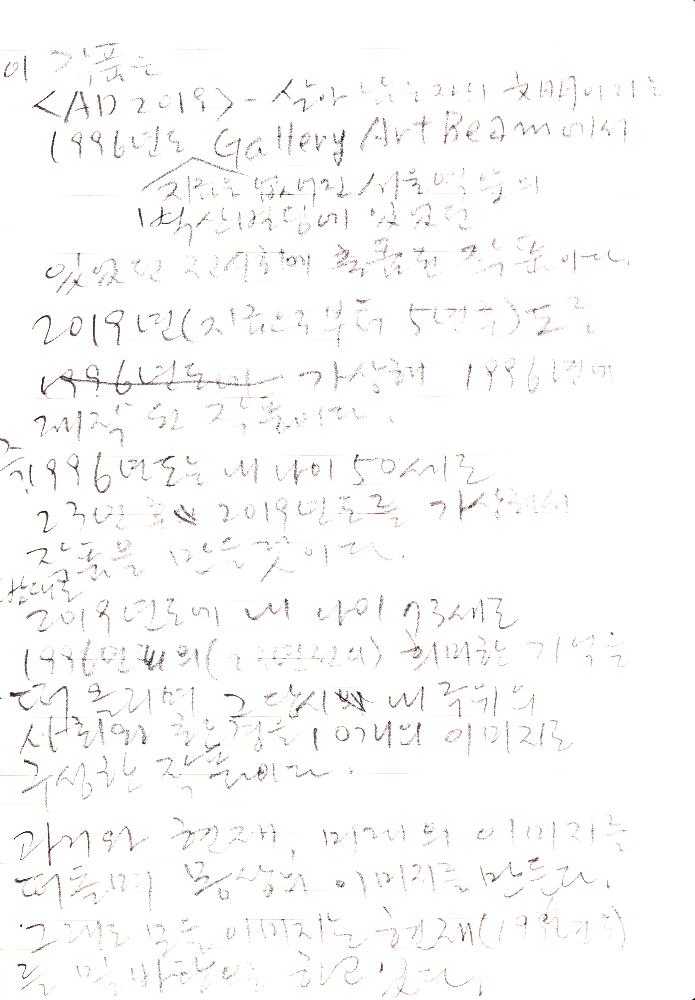 이 작품은
<AD 2019> - 살아 남은 자의
1996년도 Gallery Art Beam에서
지금은 없어진 서울역 앞의
벽산빌딩에 있었던
있었던 전시회에 출품된 작품이다.
2019년(지금으로부터 5년후)도를
1996년도에 가상해 1996년에
제작된 작품이다.
즉, 1996년도는 내 나이 50세로
23년 후 2019년도를 가상해서
작품을 만든 것이다.
반대로
2019년도에 내 나이 73세로
1996년의(23년전의) 희미한 기억을
떠올리며 그 당시 내 주위의
사회와 환경을 10개의 이미지로
구성한 작품이다.
과거와 현재, 미래의 이미지를
떠돌며 몽상의 이미지를 만든다.
그래도 모든 이미지는 현재(1996년)
를 바탕으로 하고 있다.